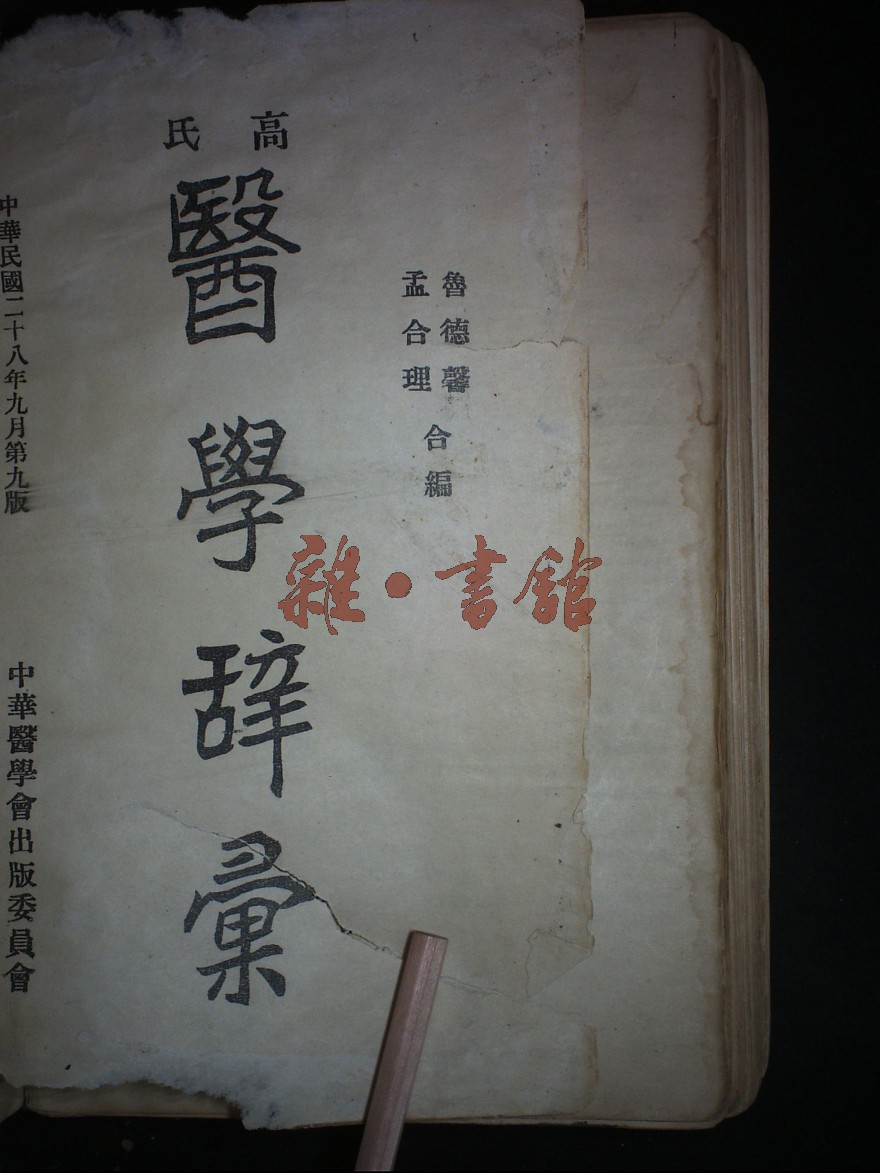 高氏
醫學辞彙
魯德馨
孟合理
合編
中華民國二十八年九月第九版
中華醫學會出版委員會
雜·書館